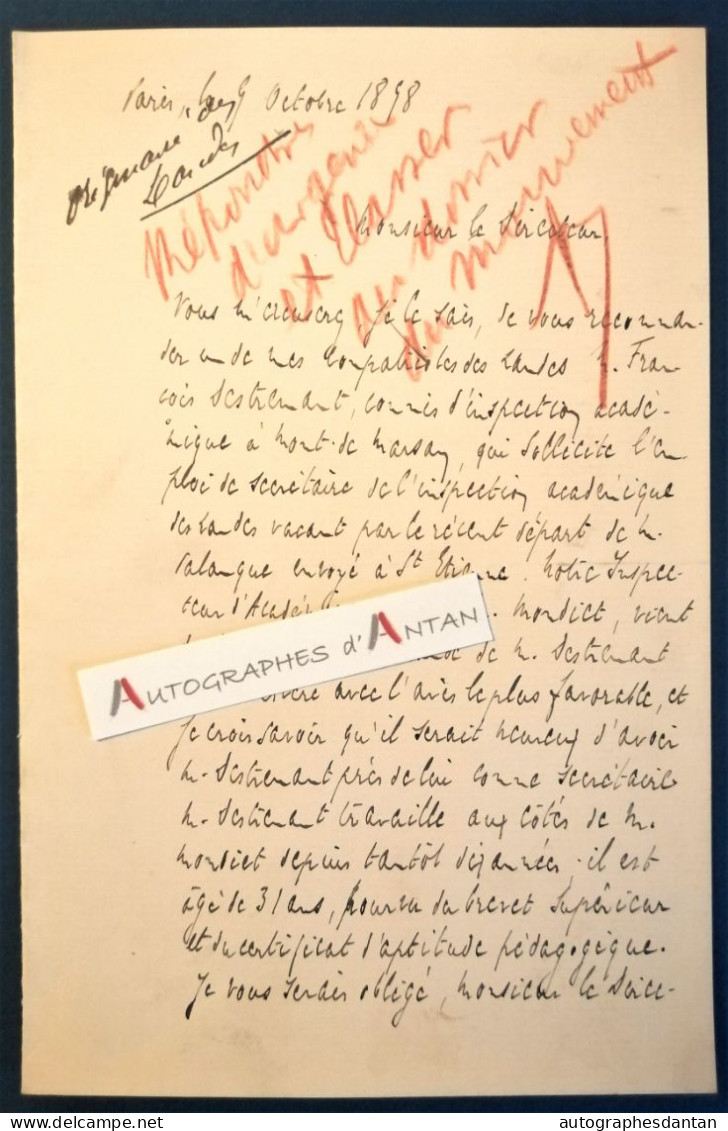 Paris, 9 Octobre 1898
Landes
Répondre
d'urgence
et Classer
au dossier
du mouvement
Monsieur le Directeur,
Vous m'excuserez, je le sais, de vous recomman-
der un de mes compatriotes des Landes M. Fran-
çois Destrémant, commis d'inspection acadé-
mique à Mont-de-Marsan, qui sollicite l'em
ploi de secrétaire de l'inspection académique
des Landes vacant par le récent départ de M.
Palanque envoyé à St Etienne. Notre Inspec-
teur d'Acadé M. Mondiet, vient
de M. Destrémant
avec l'avis le plus favorable, et
je crois savoir qu'il serait heureux d'avoir
M. Destrémant près de lui comme secrétaire
M. Destrémant travaille aux côtés de M.
Mondiet depuis tantôt dix années, il est
âgé de 31 ans, pourvu du brevet supérieur
et du certificat d'aptitude pédagogique.
Je vous serais obligé, Monsieur le Direc-
AUTOGRAPHES d'ANTAN
delcampe.net
autographesdantan